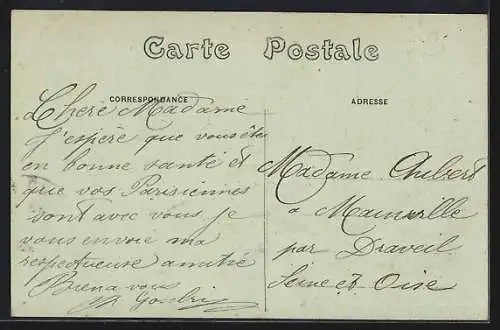 Carte Postale
CORRESPONDANCE
Chère Madame
J'espère que vous êtes
en bonne santé et
que vos Parisiennes
sont avec vous je
vous envoie ma
respectueuse amitié
ADRESSE
Madame Aubert
a Mainville
par Draveil
Seine et Oise